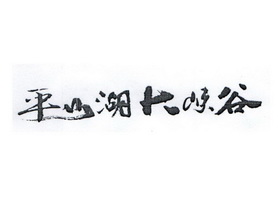 平山湖大峡谷